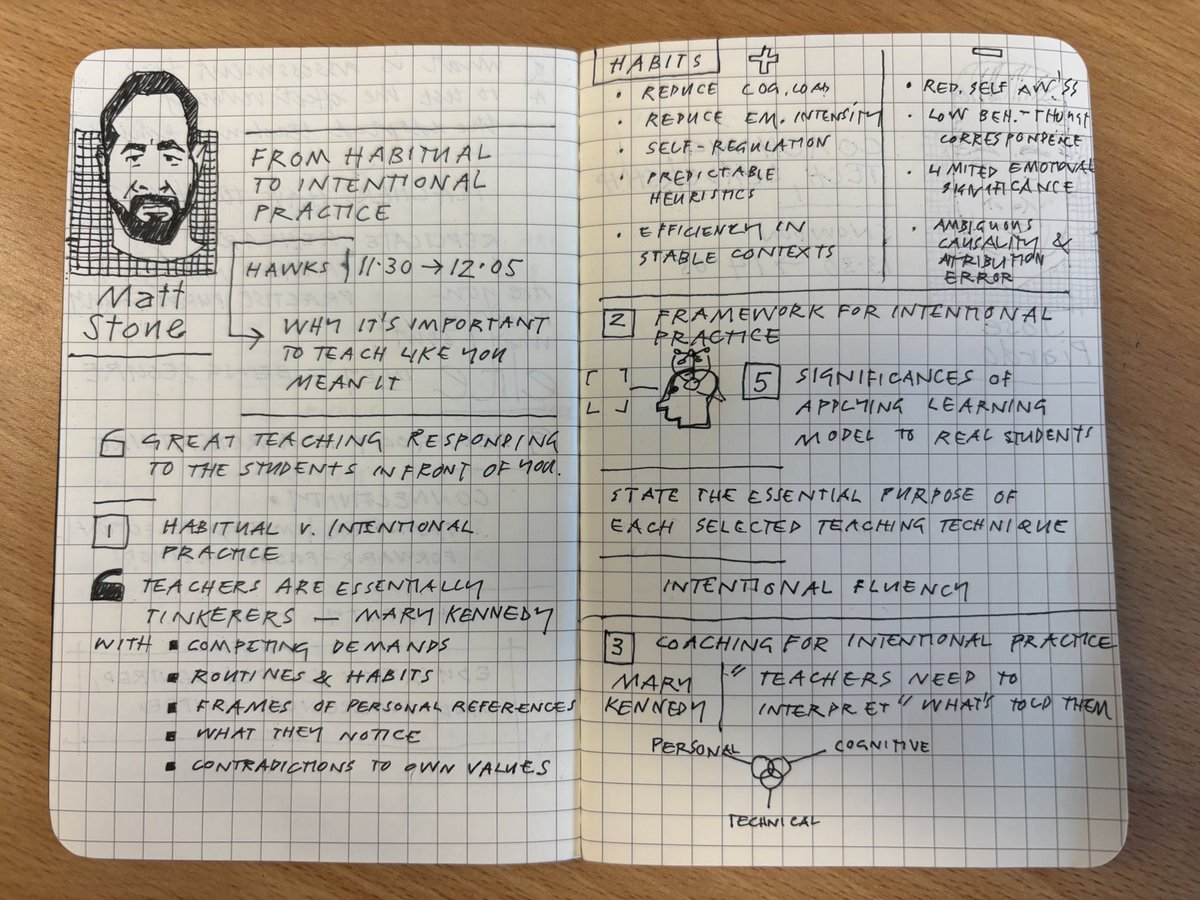 FROM HABITUAL
TO INTENTIONAL
PRACTICE
Matt
Stone
HAWKS 11.30 → 12.05
WHY IT'S IMPORTANT
TO TEACH LIKE YOU
MEAN IT
GREAT TEACHING RESPONDING
TO THE STUDENTS IN FRONT OF YOU.
1 HABITUAL V. INTENTIONAL
PRACTICE
TEACHERS ARE ESSENTIALLY
TINKERERS — MARY KENNEDY
WITH ▪ COMPETING DEMANDS
▪ ROUTINES & HABITS
▪ FRAMES OF PERSONAL REFERENCES
▪ WHAT THEY NOTICE
▪ CONTRADICTIONS TO OWN VALUES
HABITS +
• REDUCE COG. LOAD
• REDUCE EM. INTENSITY
• SELF-REGULATION
• PREDICTABLE
HEURISTICS
• EFFICIENCY IN
STABLE CONTEXTS
–
• RED. SELF AW.'SS
• LOW BEH.-THUGT
CORRESPONDENCE
• LIMITED EMOTIONAL
SIGNIFICANCE
• AMBIGUOUS
CAUSALITY &
ATTRIBUTION
ERROR
2 FRAMEWORK FOR INTENTIONAL
PRACTICE
5 SIGNIFICANCES OF
APPLYING LEARNING
MODEL TO REAL STUDENTS
STATE THE ESSENTIAL PURPOSE OF
EACH SELECTED TEACHING TECHNIQUE
INTENTIONAL FLUENCY
3 COACHING FOR INTENTIONAL PRACTICE
MARY
KENNEDY
" TEACHERS NEED TO
INTERPRET " WHAT'S TOLD THEM
PERSONAL
COGNITIVE
TECHNICAL